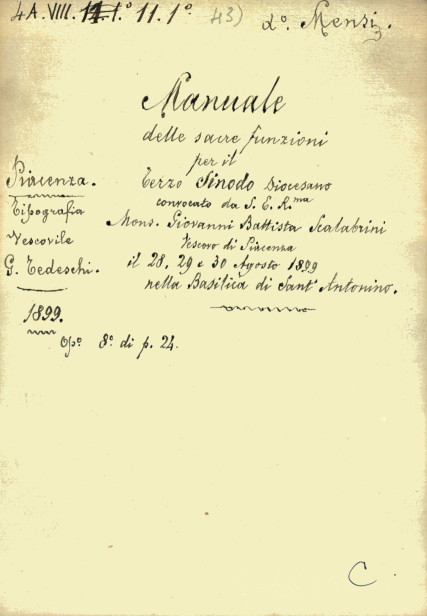 4A.VIII. 11.1° 11.1° 43) d°. Mensi.
Manuale
delle sacre funzioni
per il
Terzo Sinodo Diocesano
convocato da S. E. R.ma
Mons. Giovanni Battista Scalabrini
Vescovo di Piacenza
il 28, 29 e 30 Agosto 1899
nella Basilica di Sant' Antonino.
Piacenza.
Tipografia
Vescovile
G. Tedeschi.
1899.
Op° 8° di p. 24.
C